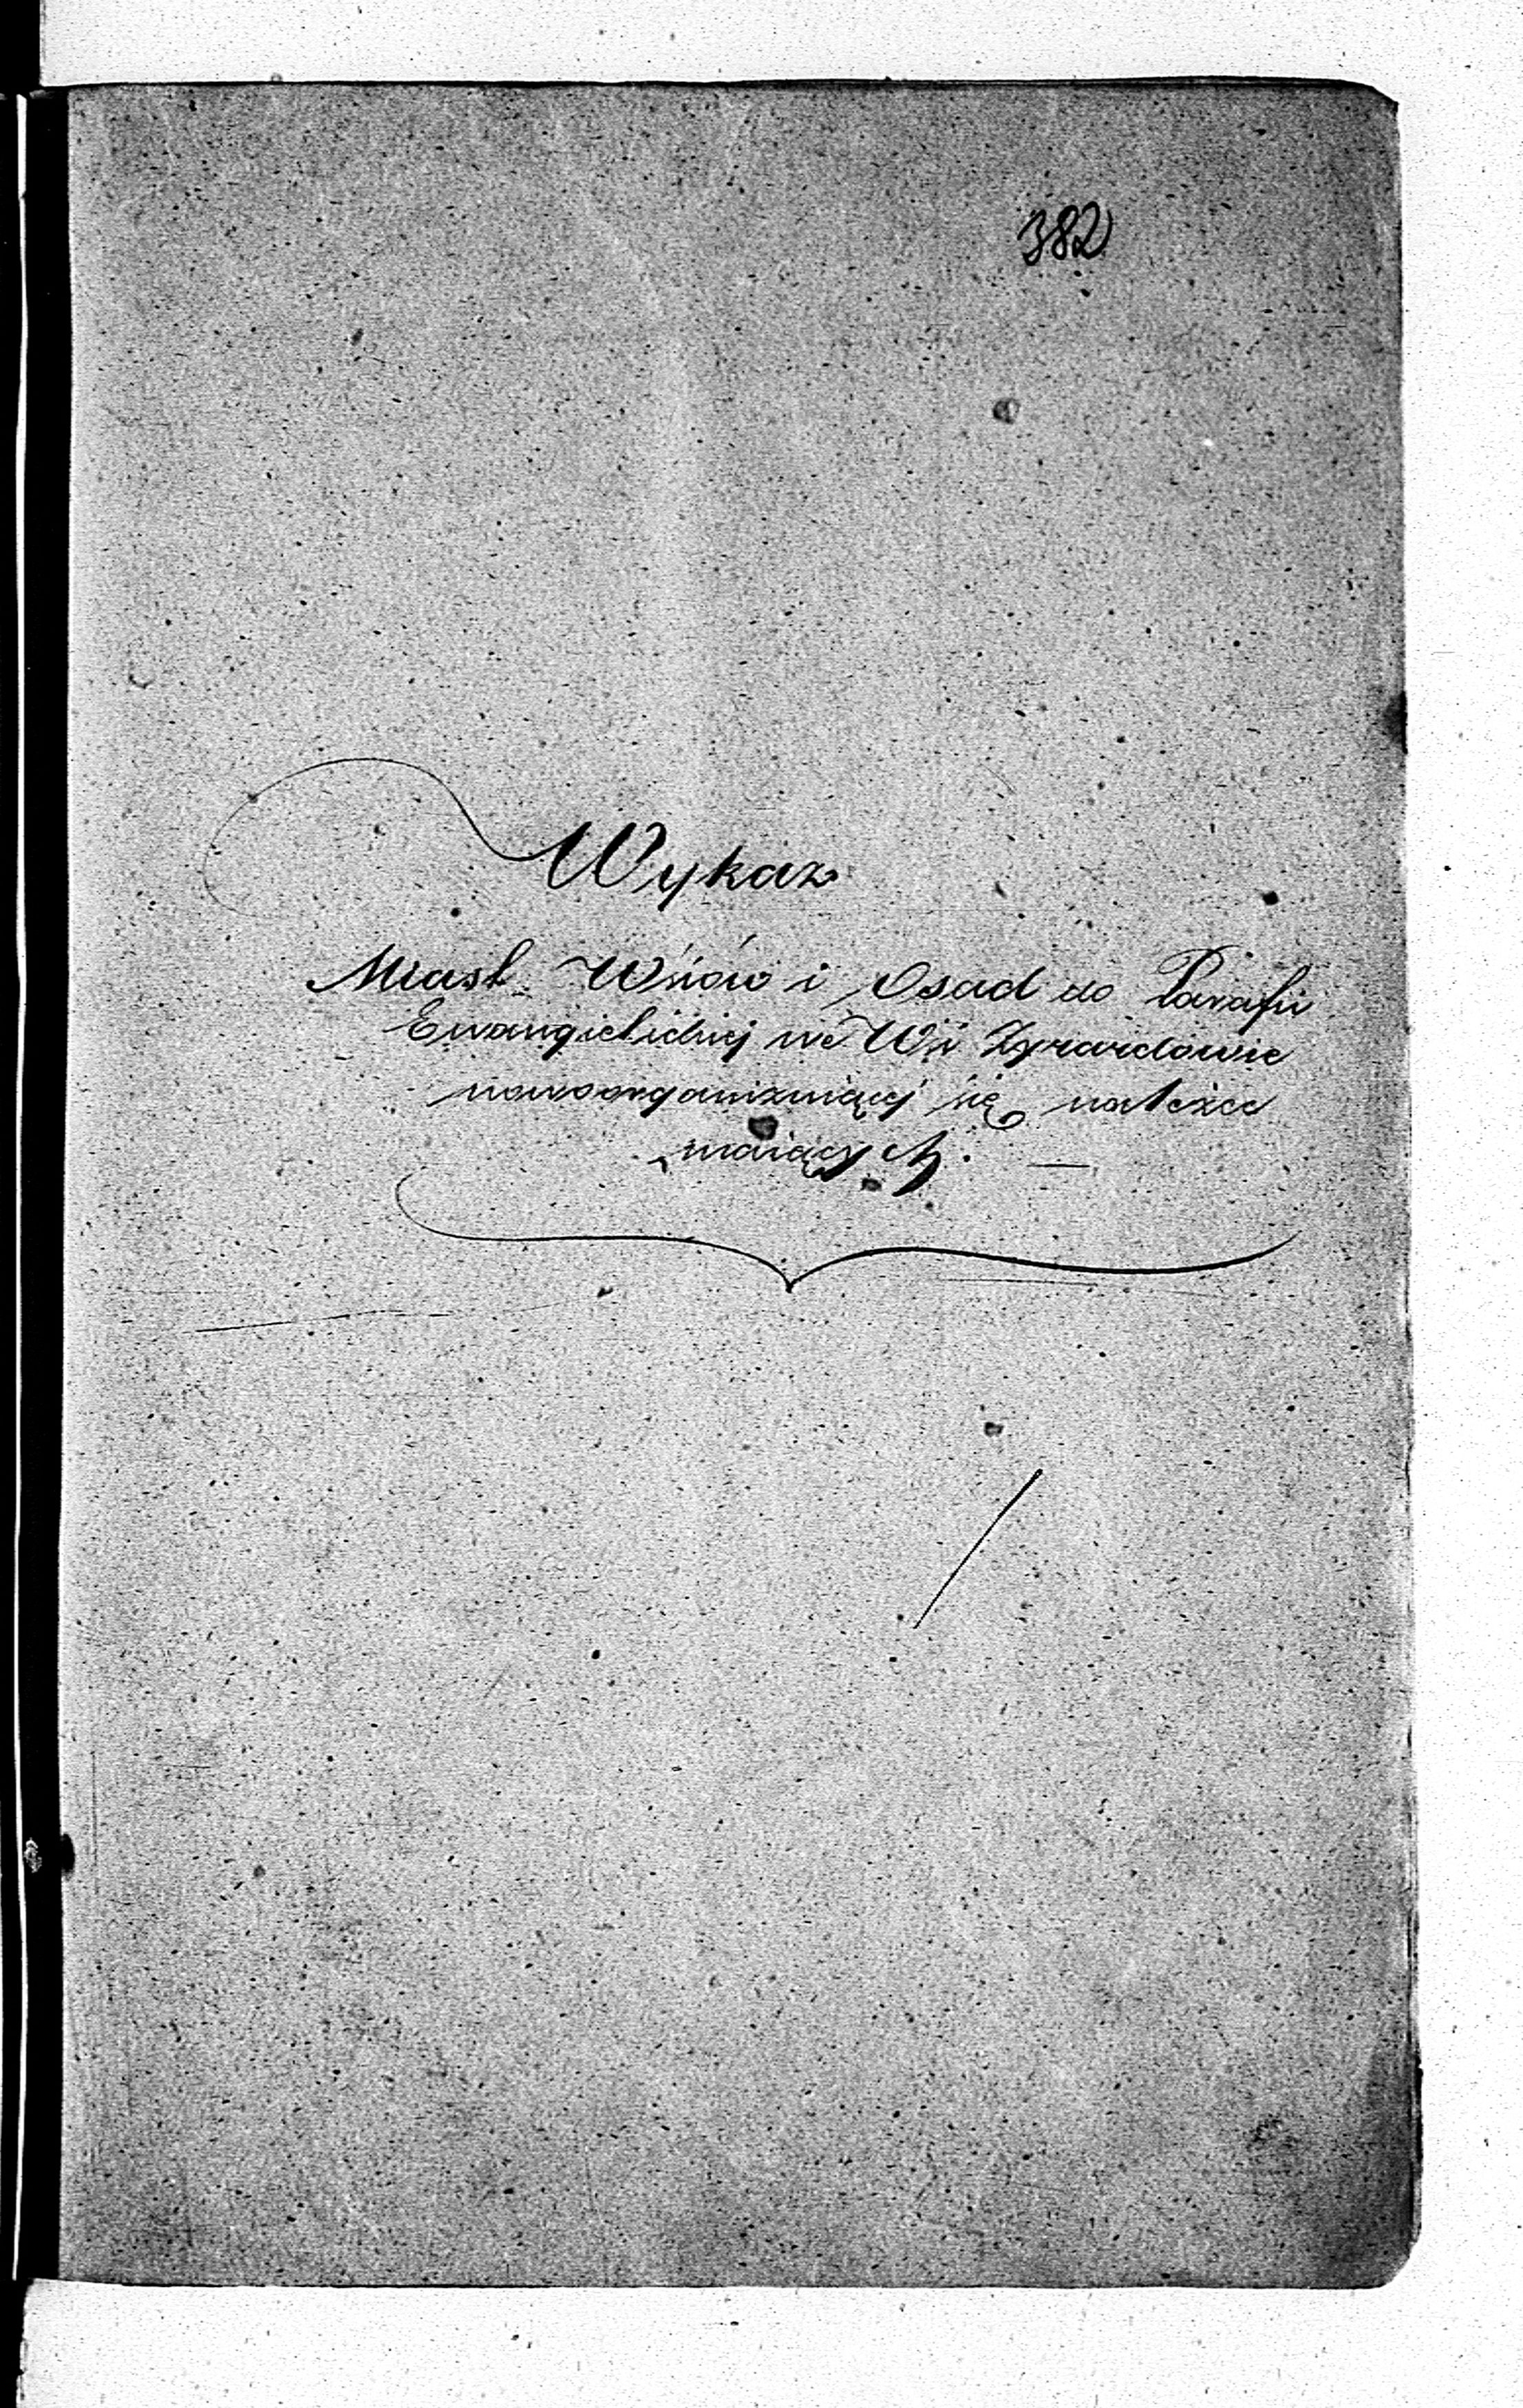 382
Wykaz
Miast Wsiów i Osad do Parafii
Ewangielickiej we Wsi Zyrardowie
nowoorganizuiący się należeć
maiących. —